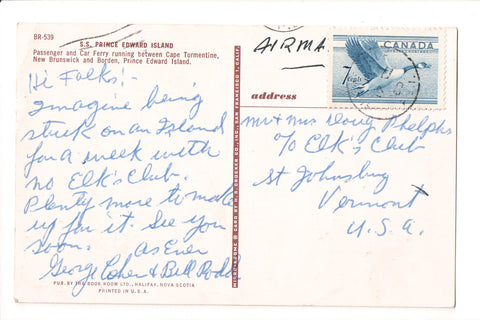 BR-539
S.S. PRINCE EDWARD ISLAND
Passenger and Car Ferry running between Cape Tormentine,
New Brunswick and Borden, Prince Edward Island.
Hi Folks!-
Imagine being
stuck on an Island
for a week with
no Elk's Club.
Plenty more to make
up for it. See you
soon.
As Ever
George Cohen & Bill Rodd
PUB. BY THE BOOK ROOM LTD., HALIFAX, NOVA SCOTIA
PRINTED IN U.S.A.
AIRMA
CANADA
7
address
Mr & Mrs Doug Phelphs
% Elk's Club
St Johnsbury
Vermont
U.S.A.